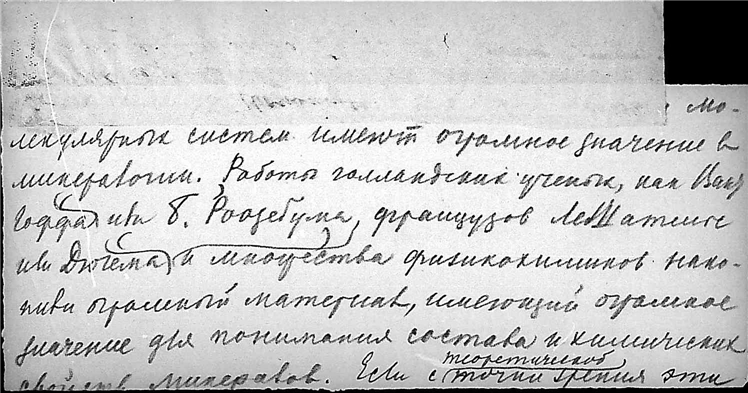 мо-
лекулярных систем имеют огромное значение в
минералогии. Работы голландских ученых, как Вант
Гоффа или Б. Роозебума, французов ЛеШателье
или Дюгема и множества физикохимиков нако-
пили огромный материал, имеющий огромное
значение для понимания состава и химических
теоретической
свойств минералов. Если с точки зрения эти